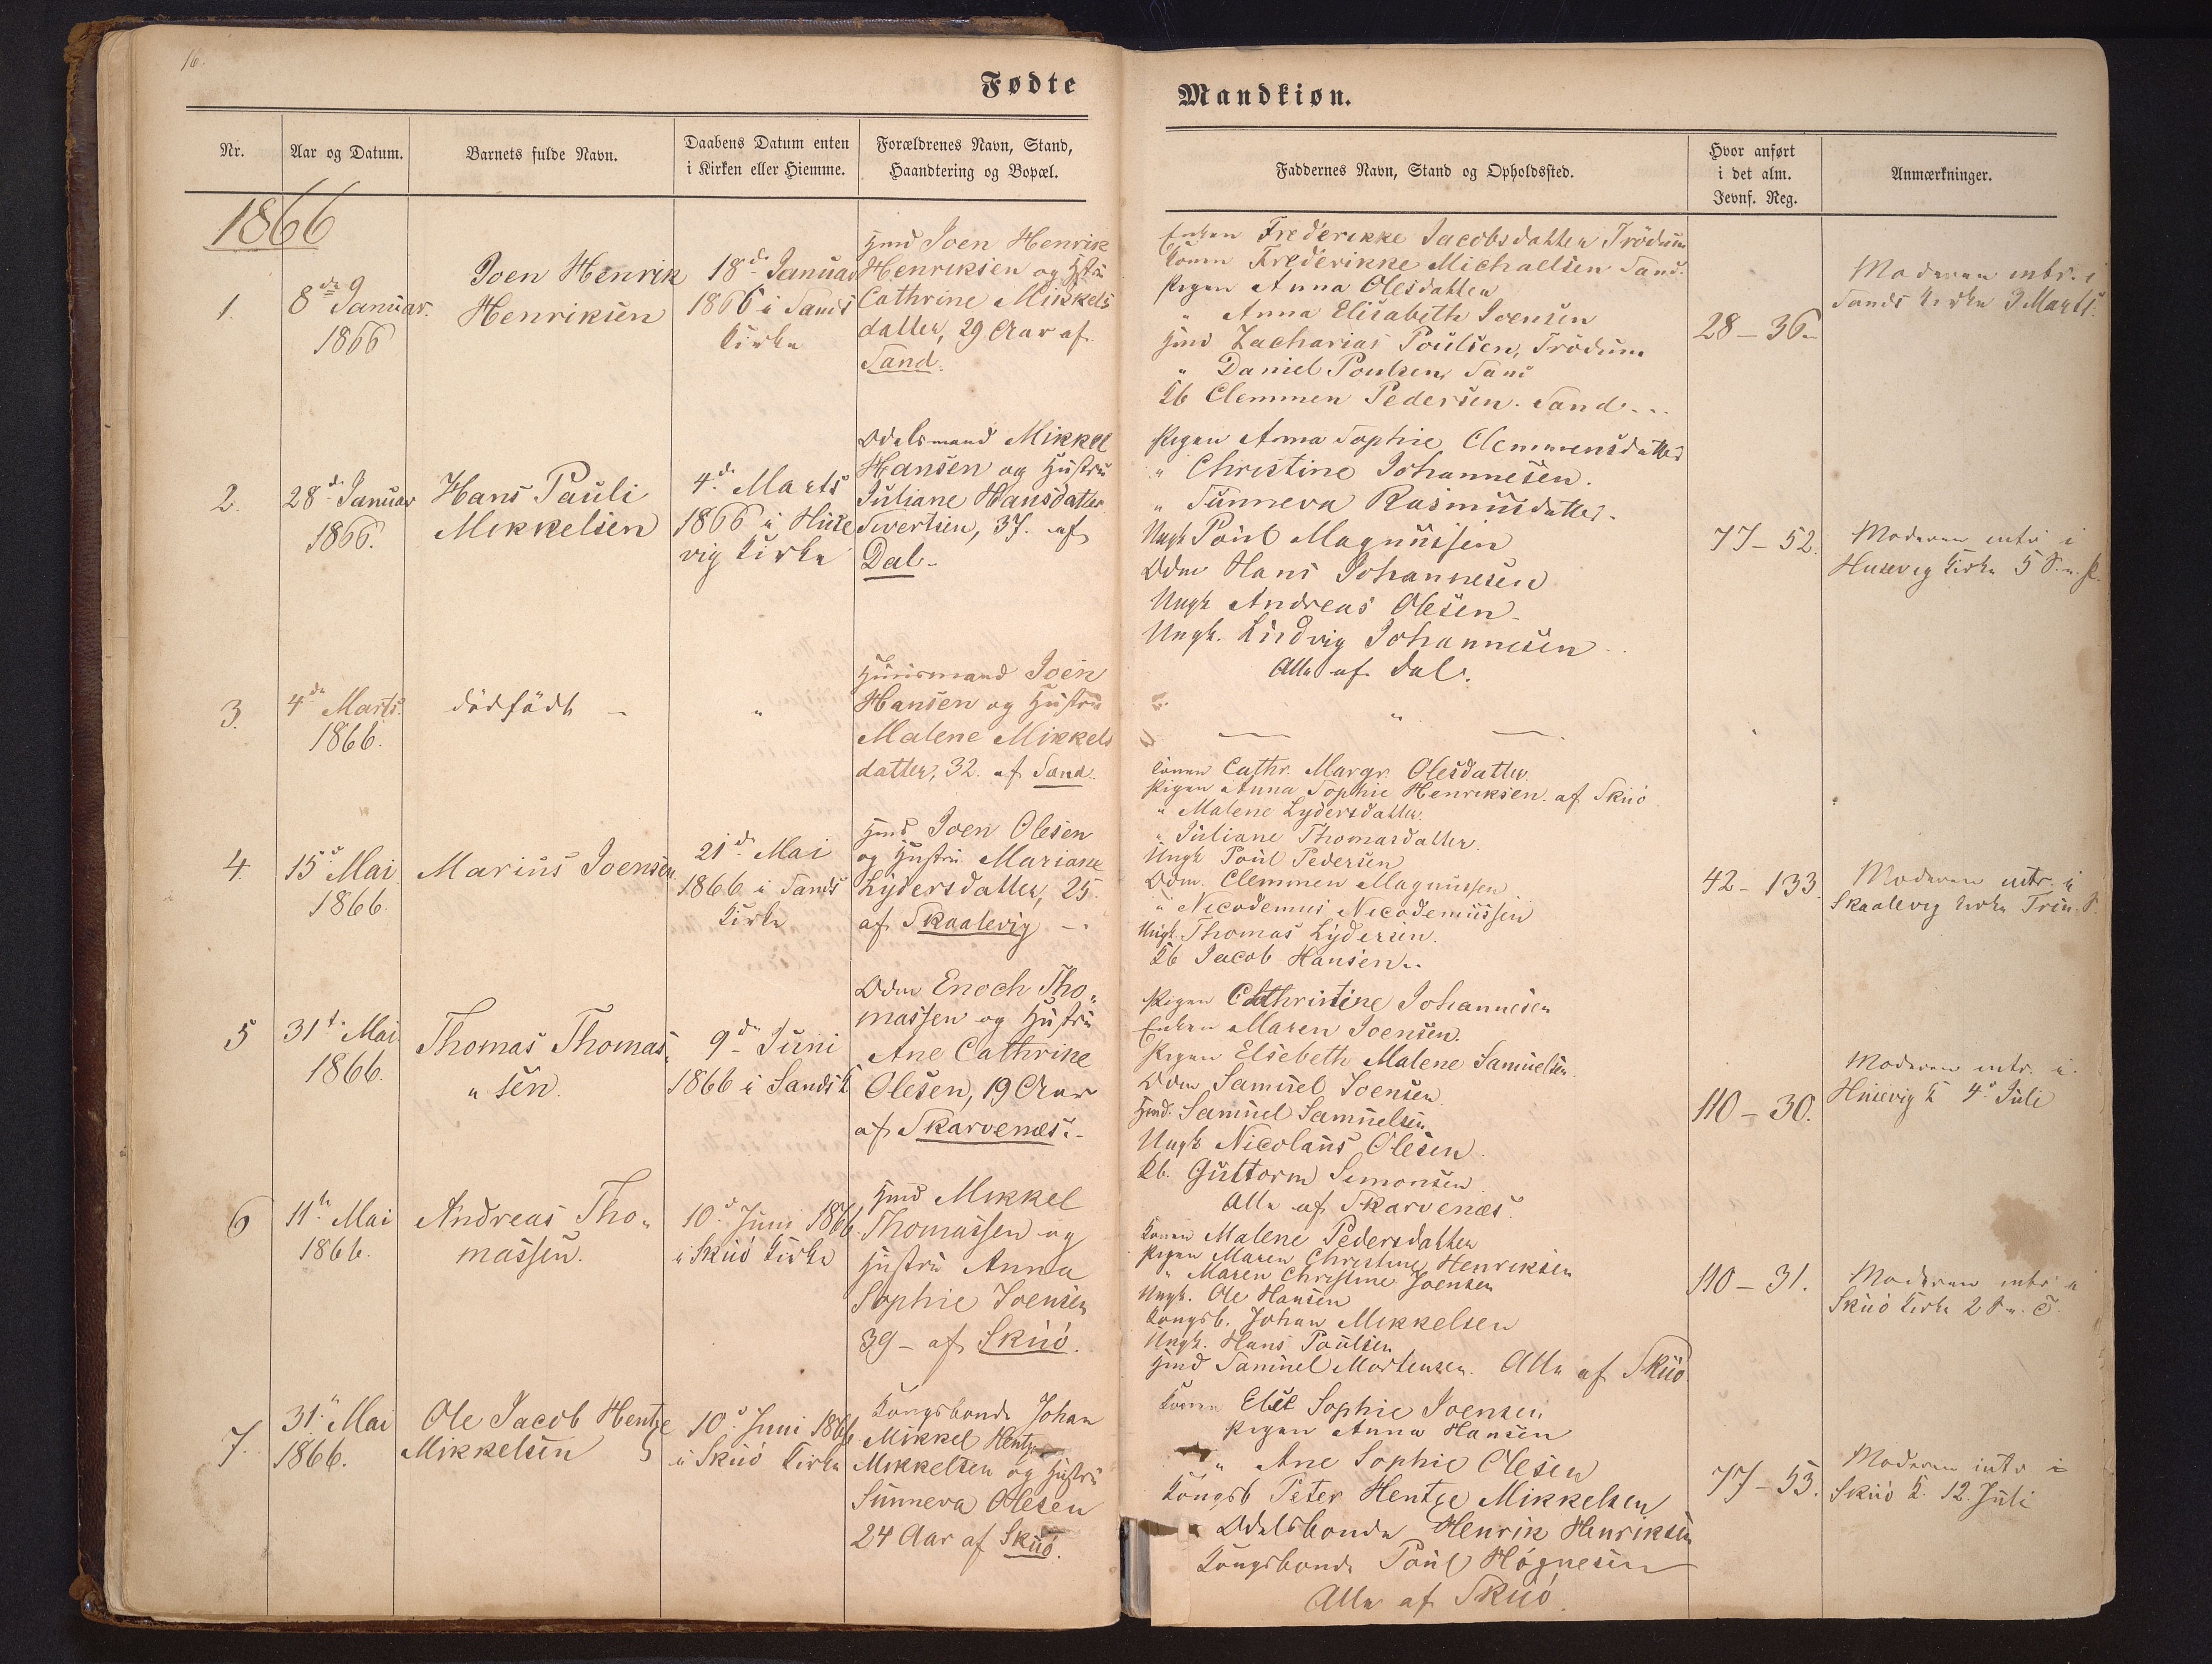 16.
Fødte
Mandkiøn.
Nr.
Aar og Datum.
Barnets fulde Navn.
Daabens Datum enten
i Kirken eller Hiemme.
Forældrenes Navn, Stand,
Haandtering og Bopæl.
Faddernes Navn, Stand og Opholdssted.
Hvor anført
i det alm.
Jevnf. Reg.
Anmærkninger.
1866
1.
8de Januar.
1866
Joen Henrik
Henriksen
18de Januar
1866 i Sands
Kirke
Hmd Joen Henrik
Henriksen og Hstru
Cathrine Mikkels
datter, 29 Aar af
Sand.
Enken Frederikke Jacobsdatter Trödum
Konen Frederikke Michaelsen Sand.
Pigen Anna Olesdatter
" Anna Elisabeth Joensen
Hmd Zacharias Poulsen, Trödum
" Daniel Poulsen, Sand
Kb Clemmen Pedersen. Sand
28 – 36
Moderen intr. i
Sands Kirke 3 Marts.
2.
28de Januar
1866.
Hans Pauli
Mikkelsen
4de Marts
1866 i Huse
vig Kirke
Odelsmand Mikkel
Hansen og Hustru
Juliane Hansdatter
Sivertsen, 37. af
Dal.
Pigen Anna Sophie Clemmensdatter
" Christine Johannesen.
" Sunneva Rasmusdatter.
Ungk Poul Magnussen
Odm Hans Johannesen
Ungk Andreas Olesen
Ungk. Ludvig Johannesen
Alle af Dal.
77 – 52.
Moderen intr i
Husevig Kirke 5 S. . P.
3.
4de Marts.
1866.
dödfödt –
"
Huusmand Joen
Hansen og Hustru
Malene Mikkels
datter, 32. af Sand.
"
4.
15de Mai
1866.
Marius Joensen
21de Mai
1866 i Sands
Kirke
Hmd Joen Olesen
og Hustru Mariane
Lydersdatter, 25.
af Skaalevig –
Konen Cathr. Margr. Olesdatter.
Pigen Anna Sophie Henriksen. af Skuö
" Malene Lydersdatter.
" Juliane Thomasdatter.
Ungk Poul Pedersen
Odm. Clemmen Magnussen
" Nicodemus Nicodemussen
Ungk. Thomas Lydersen.
Kb Jacob Hansen.
42 – 133
Moderen intr. i
Skaalevig Kirke Trin. S.
5
31te Mai
1866.
Thomas Thomas
" sen.
9de Juni
1866 i Sands K
Odm Enoch Tho
massen og Hustru
Ane Cathrine
Olesen, 19 Aar
af Skarvenæs.
Pigen Cathristine Johannesen
Enken Maren Joensen.
Pigen Elsebeth Malene Samuelsen.
Odm Samuel Joensen
Hmd. Samuel Samuelsen
Ungk Nicolaus Olesen.
Kb. Guttorm Simonsen
Alle af Skarvenæs.
110 – 30.
Moderen intr. i
Husevig K 4de Juli
6
11te Mai
1866.
Andreas Tho
massen.
10de Juni 1866.
i Skuö Kirke
Hmd Mikkel
Thomassen og
Hustru Anna
Sophie Joensen
39 – af Skuö.
Konen Malene Pedersdatter
Pigen Maren Christine Henriksen
" Maren Christine Joensen
Ungk. Ole Hansen
Kongsb. Johan Mikkelsen
Ungk. Hans Poulsen
Hmd Samuel Mortensen. Alle af Skuö
110 – 31.
Moderen intr i
Skuö Kirke 2 S. . T.
7.
31te Mai
1866.
Ole Jacob Hentze
Mikkelsen
10de Juni 1866
i Skuö Kirke
Kongsbonde Johan
Mikkel Hentze
Mikkelsen og Hustru
Sunneva Olesen
24 Aar af Skuö.
Konen Else Sophie Joensen
Pigen Anna Hansen
" Ane Sophie Olesen
Kongsb Peter Hentze Mikkelsen
Odelsbonde Henrik Henriksen
Kongsbonde Poul Högnesen
Alle af Skuö.
77 – 53.
Moderen intr i
Skuö K. 12. Juli